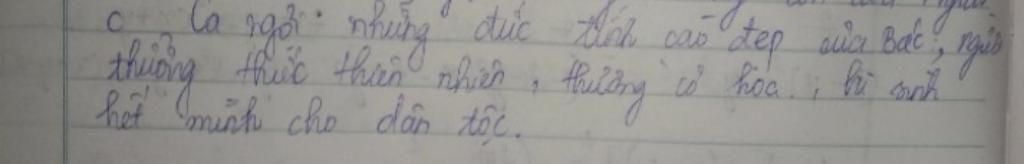 c Ca ngợi những đức tính cao đẹp của Bác, người
thưởng thức thiên nhiên, thương cỏ hoa, hi sinh
hết mình cho dân tộc.